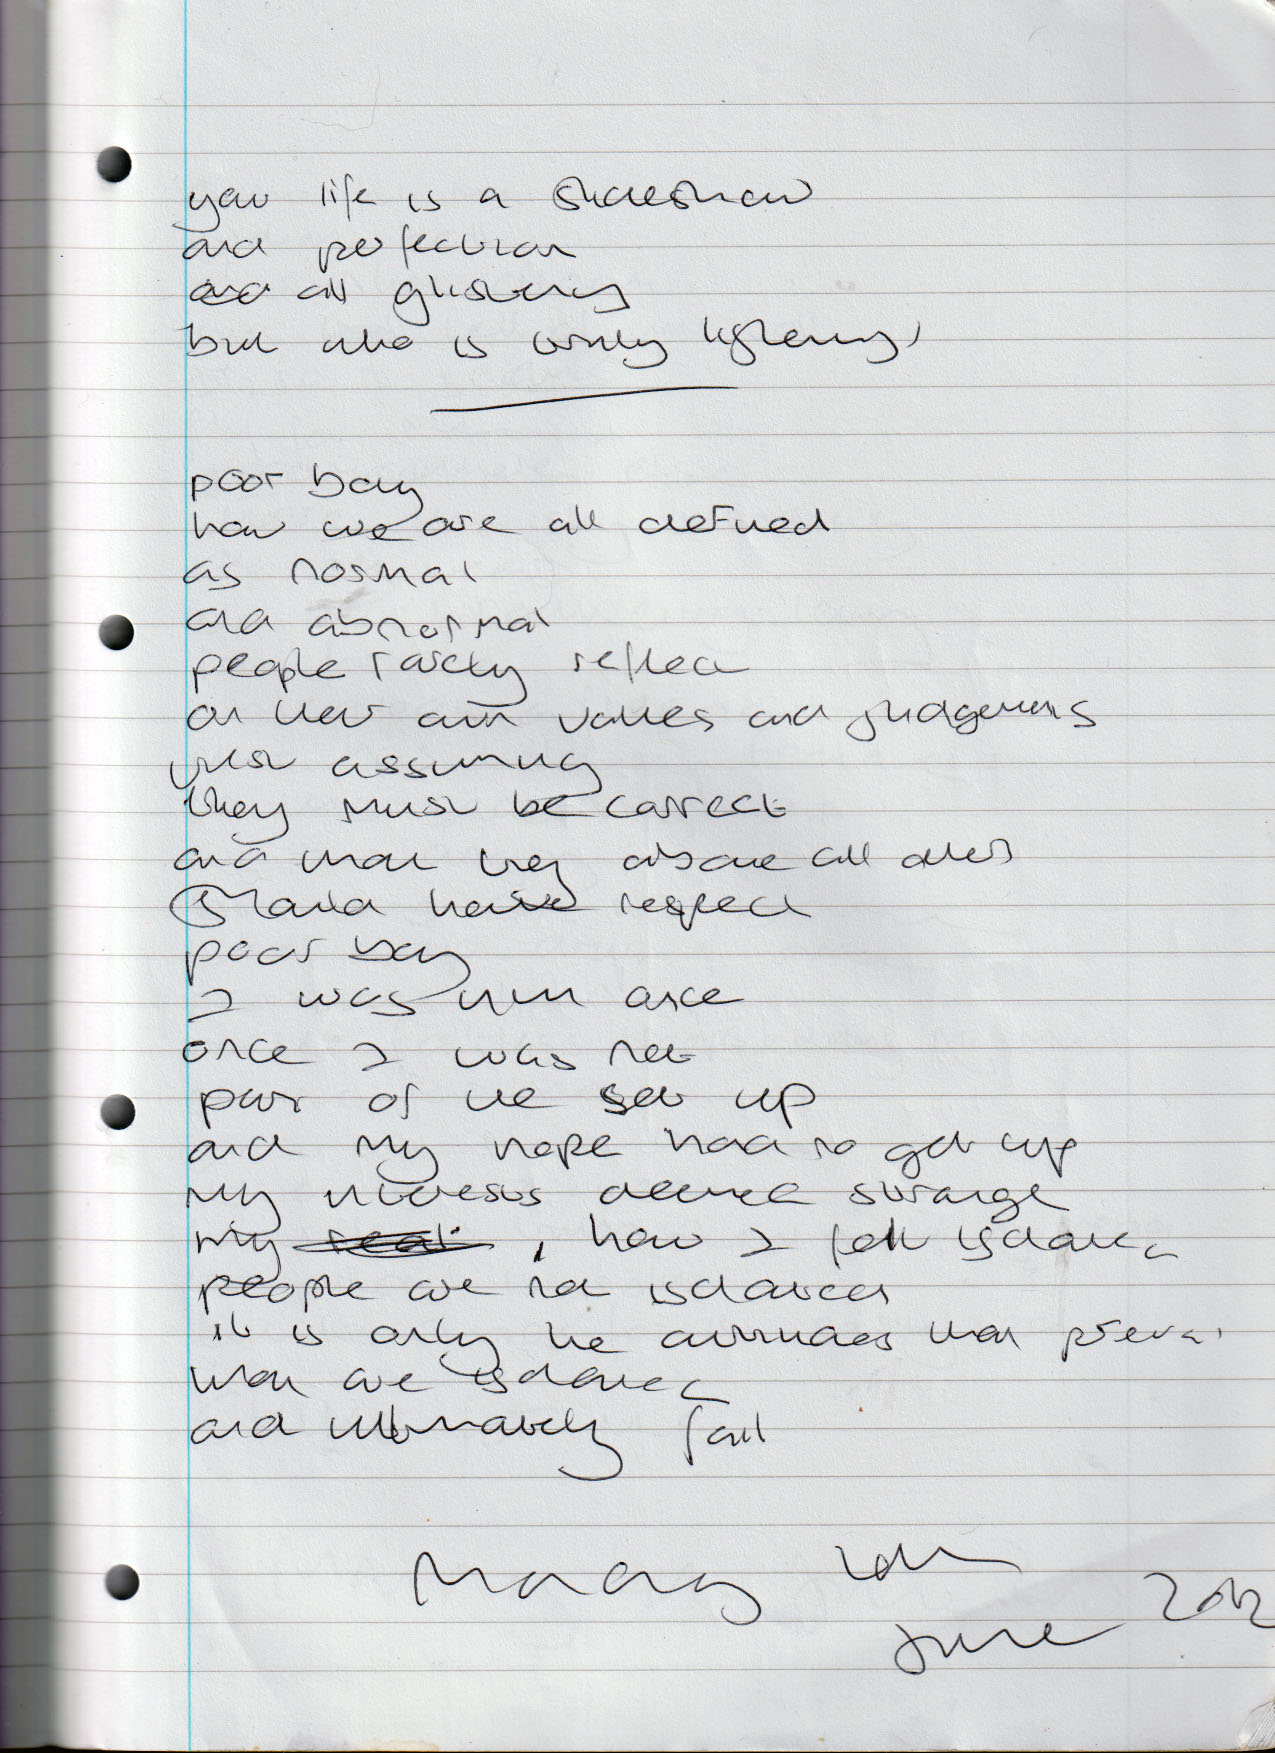 your life is a slideshow
and perfection
and all glistening
but who is truly listening
poor boy
how we are all defined
as normal
and abnormal
people rarely reflect
on their own values and judgements
just assuming
they must be correct
and that they above all others
should have respect
poor boy
I was him once
once I was not
part of the set up
and my hope had to get up
my interests deemed strange
my , how I felt isolated
people are not isolated
it is only the attitudes that prevail
that are isolated
and ultimately fail
June 2012